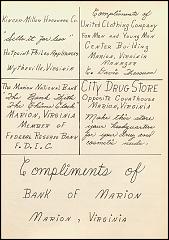 Kinzer-Miller Hardware Co.
"Sells it for less"
Hotpoint Philco Appliances
Wytheville, Virginia
Compliments of
United Clothing Company
For Men and Young Men
Center Building
Marion, Virginia
Manager
The Marion National Bank
"The Bank With
The Chime Clock"
Marion, Virginia
Member of
Federal Reserve Bank
F. D. I. C.
City Drug Store
Opposite Courthouse
Marion, Virginia
Make this store
your headquarters
for your drug and
cosmetic needs.
Compliments of
Bank of Marion
Marion, Virginia